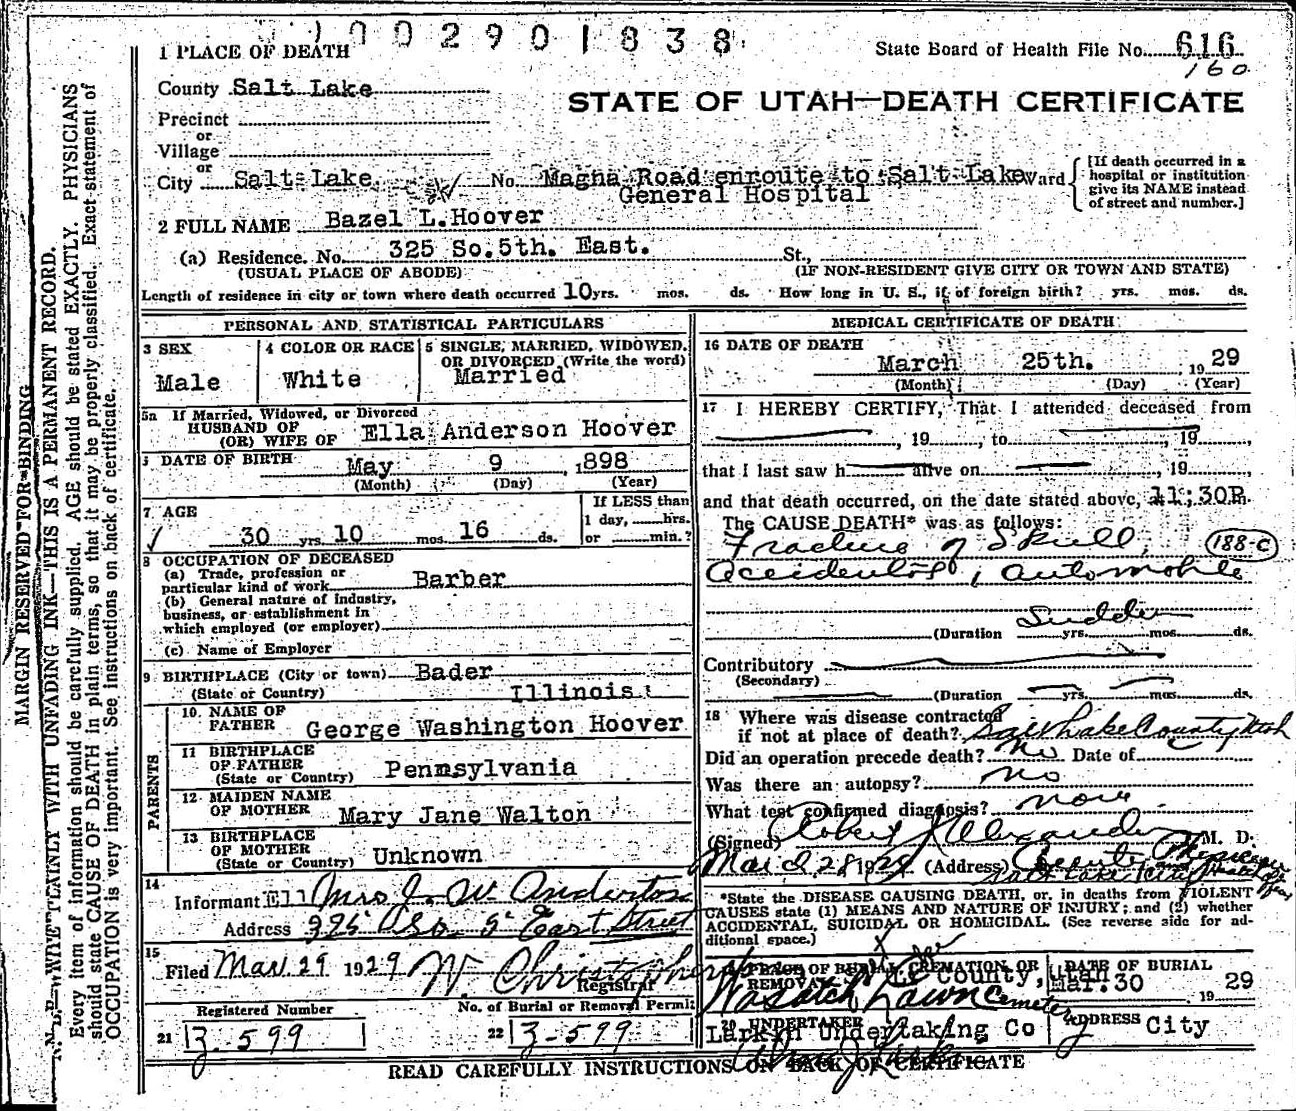 1002901838
1 PLACE OF DEATH
State Board of Health File No. 616
160
County Salt Lake
STATE OF UTAH—DEATH CERTIFICATE
Precinct
or
Village
or
City Salt Lake No. Magna Road enroute to Salt Lake Ward
General Hospital
[If death occurred in a
hospital or institution
give its NAME instead
of street and number.]
2 FULL NAME Bazel L. Hoover
(a) Residence. No. 325 So. 5th. East. St.,
(USUAL PLACE OF ABODE) (IF NON-RESIDENT GIVE CITY OR TOWN AND STATE)
Length of residence in city or town where death occurred 10 yrs. mos. ds. How long in U. S., if of foreign birth? yrs. mos. ds.
PERSONAL AND STATISTICAL PARTICULARS
3 SEX
Male
4 COLOR OR RACE
White
5 SINGLE, MARRIED, WIDOWED,
OR DIVORCED (Write the word)
Married
5a If Married, Widowed, or Divorced
HUSBAND OF
(OR) WIFE OF Ella Anderson Hoover
DATE OF BIRTH May 9, 1898
(Month) (Day) (Year)
7 AGE
30 yrs. 10 mos. 16 ds.
If LESS than
1 day, hrs.
or min.?
8 OCCUPATION OF DECEASED
(a) Trade, profession or
particular kind of work Barber
(b) General nature of industry,
business, or establishment in
which employed (or employer)
(c) Name of Employer
9 BIRTHPLACE (City or town) Bader
(State or Country) Illinois
PARENTS
10 NAME OF
FATHER George Washington Hoover
11 BIRTHPLACE
OF FATHER
(State or Country) Pennsylvania
12 MAIDEN NAME
OF MOTHER Mary Jane Walton
13 BIRTHPLACE
OF MOTHER
(State or Country) Unknown
14
Informant Ell Mrs J. W. Anderton
Address 325 So. 5 East Street
15
Filed Mar. 29 1929 W. Christopherson
Registrar
Registered Number
21 3-599
No. of Burial or Removal Permit
22 3-599
MEDICAL CERTIFICATE OF DEATH
16 DATE OF DEATH
March 25th. 1929
(Month) (Day) (Year)
17 I HEREBY CERTIFY, That I attended deceased from
, 19 , to , 19 ,
that I last saw h alive on , 19 ,
and that death occurred, on the date stated above, 11:30P.
The CAUSE DEATH* was as follows:
Fracture of Skull, 188-c
accidental, automobile
Sudden
(Duration yrs. mos. ds.
Contributory
(Secondary)
(Duration yrs. mos. ds.
18 Where was disease contracted
if not at place of death? Salt Lake County Utah
Did an operation precede death? No Date of
Was there an autopsy? no
What test confirmed diagnosis? none
(Signed) Robert J Alexander M. D.
March 28, 1929 (Address) County Physician
Salt Lake City
*State the DISEASE CAUSING DEATH, or, in deaths from VIOLENT
CAUSES state (1) MEANS AND NATURE OF INJURY; and (2) whether
ACCIDENTAL, SUICIDAL OR HOMICIDAL. (See reverse side for ad-
ditional space.)
PLACE OF BURIAL, CREMATION OR
REMOVAL County, Utah
Wasatch Lawn Cemetery
DATE OF BURIAL
Mar. 30 1929
20 UNDERTAKER
Larkin Undertaking Co
ADDRESS City
READ CAREFULLY INSTRUCTIONS ON BACK OF CERTIFICATE
MARGIN RESERVED FOR BINDING
N. B.—WRITE PLAINLY WITH UNFADING INK—THIS IS A PERMANENT RECORD.
Every item of information should be carefully supplied. AGE should be stated EXACTLY. PHYSICIANS
should state CAUSE OF DEATH in plain terms, so that it may be properly classified. Exact statement of
OCCUPATION is very important. See instructions on back of certificate.